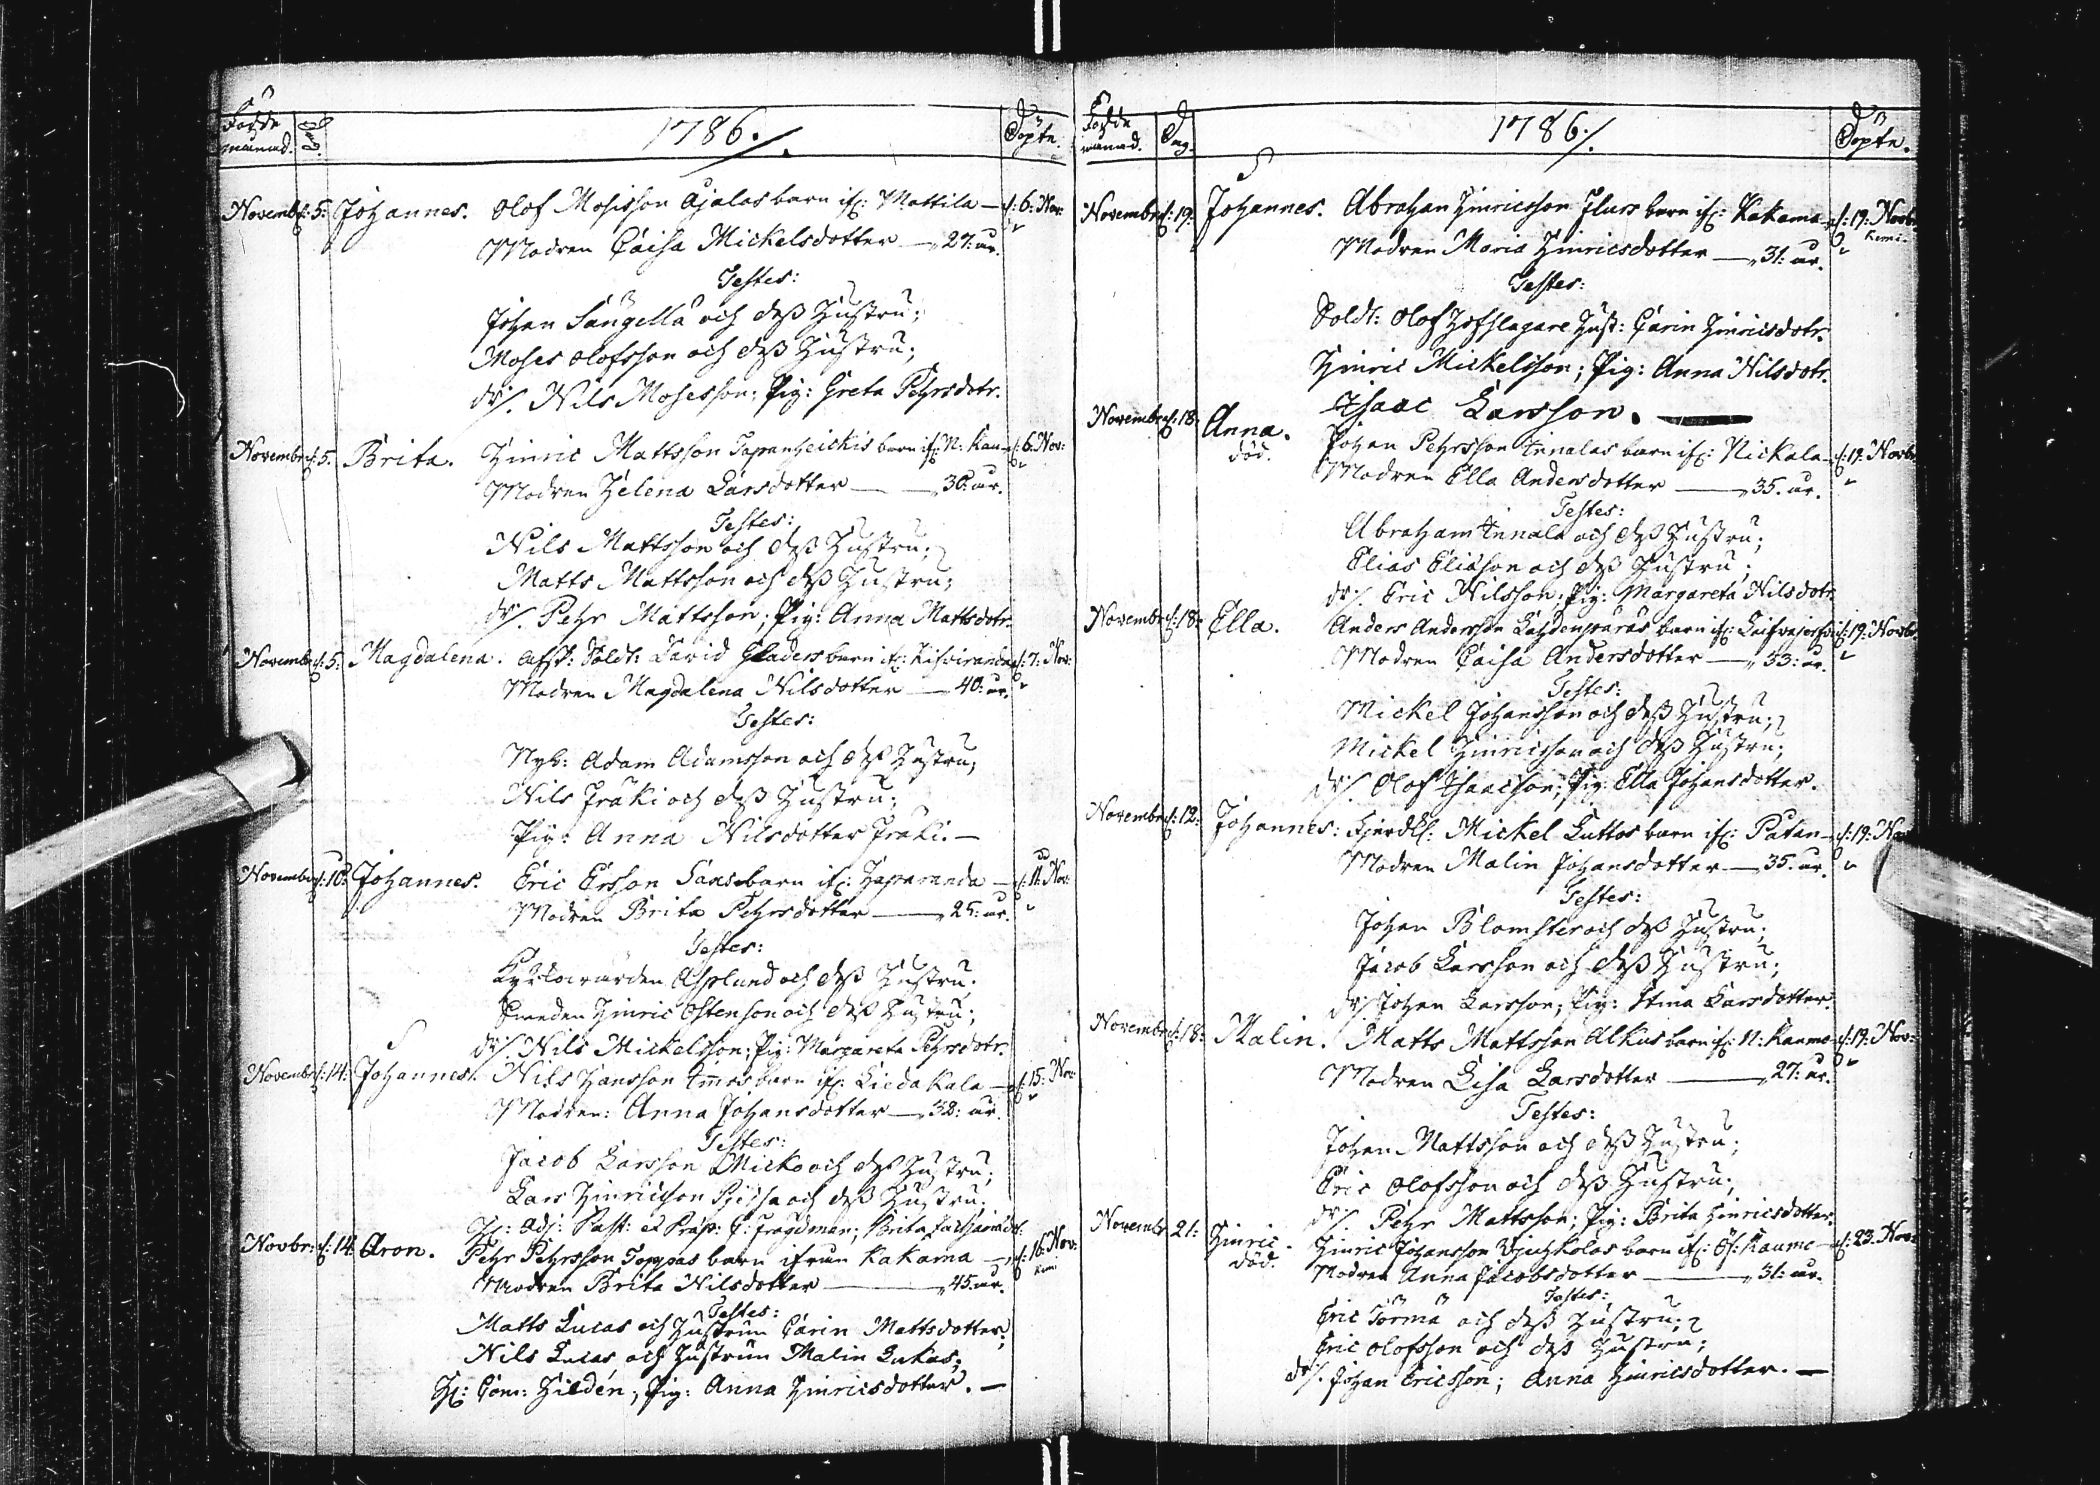 Födde månad. Dag. 1786./. Döpte.
Novemb: d: 5: Johannes. Olof Mosisson Ajalas barn ifr: Mattila — d: 6: Nov:
Modren Caisa Mickelsdotter — 27: år.
Testes:
Johan och dess Hustru;
Moses Olofsson och dess Hustru;
dr/. Nils Mosesson; Pig: Greta Pehrsdotr.
Novembr d: 5. Brita. Hinric Mattsson barn ifr: N: d: 6: Nov:
Modren Helena Larsdotter — år.
Testes:
Nils Mattsson och dess Hustru;
Matts Mattsson och dess Hustru;
dr/. Pehr Mattsson; Pig: Anna Mattsdotr.
Novembr d: 5: Magdalena. Afsk: Soldt: David barn if: d: 7: Nov:
Modren Magdalena Nilsdotter — 40: år.
Testes:
Nyb: Adam Adamsson och dess Hustru;
Nils Fräki och dess Hustru;
Pig: Anna Nilsdotter Fräki. —
Novembr d: 10: Johannes. Eric Ersson barn ifr: Haparanda — d: 11: Nov:
Modren Brita Pehrsdotter — 25: år.
Testes:
Asplund och dess Hustru;
Smeden Hinric Ostenson och dess Hustru;
dr/. Nils Mickelsson; Pig: Margareta Pehrsdotr.
Novembr d: 14: Johannes. Nils Hansson barn ifr: Liedakala — d: 15: Nov:
Modren: Anna Johansdotter — 38: år.
Testes:
Jacob Larsson Micko och dess Hustru;
Lars Hinricsson och dess Hustru;
Hr: Adj: Brita
Novbr: d: 14 Aron. Pehr Pehrsson Toppas barn ifrån Kakama — d: 16: Nov:
Modren Brita Nilsdotter — 45. år.
Testes:
Matts Lucas och Hustrun Carin Mattsdotter;
Nils Lucas och Hustrun Malin Lukas;
Hr: Com: Hildén; Pig: Anna Hinricsdotter. —
Födde månad. Dag. 1786./. Döpte.
Novembr d: 19: Johannes. Abraham Hinricsson barn ifr: Kakama — d: 19: Novbr.
Kemi.
Modren Maria Hinricsdotter — 31: år.
Testes:
Soldt: Olof Hofslagare Hust: Carin Hinricsdotr.
Hinric Mickelsson; Pig: Anna Nilsdotr.
Isaac Larsson. —
Novembr d: 18: Anna. Johan Pehrsson Innalas barn ifr: Nickala — d: 19: Novbr
död.
Modren Ella Andersdotter — 35. år.
Testes:
Abraham Innala och dess Hustru;
Elias Eliasson och dess Hustru;
dr/. Eric Nilsson; Pig: Margareta Nilsdotr.
Novembr d: 18: Ella. Anders Andersson barn ifr: d: 19: Novbr
Modren Caisa Andersdotter — 33: år.
Testes:
Mickel Johansson och dess Hustru;
Mickel Hinricsson och dess Hustru;
dr/. Olof Isaacsson; Pig: Ella Johansdotter.
Novembr d: 12: Johannes: Mickel Luttos barn ifr: Patan — d: 19: Nov
Modren Malin Johansdotter — 35. år.
Testes:
Johan Blomster och dess Hustru;
Jacob Larsson och dess Hustru;
dr/ Johan Larsson; Pig: Stina Larsdotter.
Novembr d: 18: Malin. Matts Mattsson Alkus barn ifr: N: Kaumo — d: 19: Nov:
Modren Lisa Larsdotter — 27: år.
Testes:
Johan Mattsson och dess Hustru;
Eric Olofsson och dess Hustru;
dr/. Pehr Mattsson; Pig: Brita Hinricsdotter.
Novembr 21: Hinric. Hinric Johansson barn ifr: Öf: Kaumo — d: 23. Nov:
död.
Modren Anna Jacobsdotter — 31: år.
Testes:
Eric Törmä och dess Hustru;
Eric Olofsson och dess Hustru;
dr/. Johan Ericsson; Anna Hinricsdotter. —